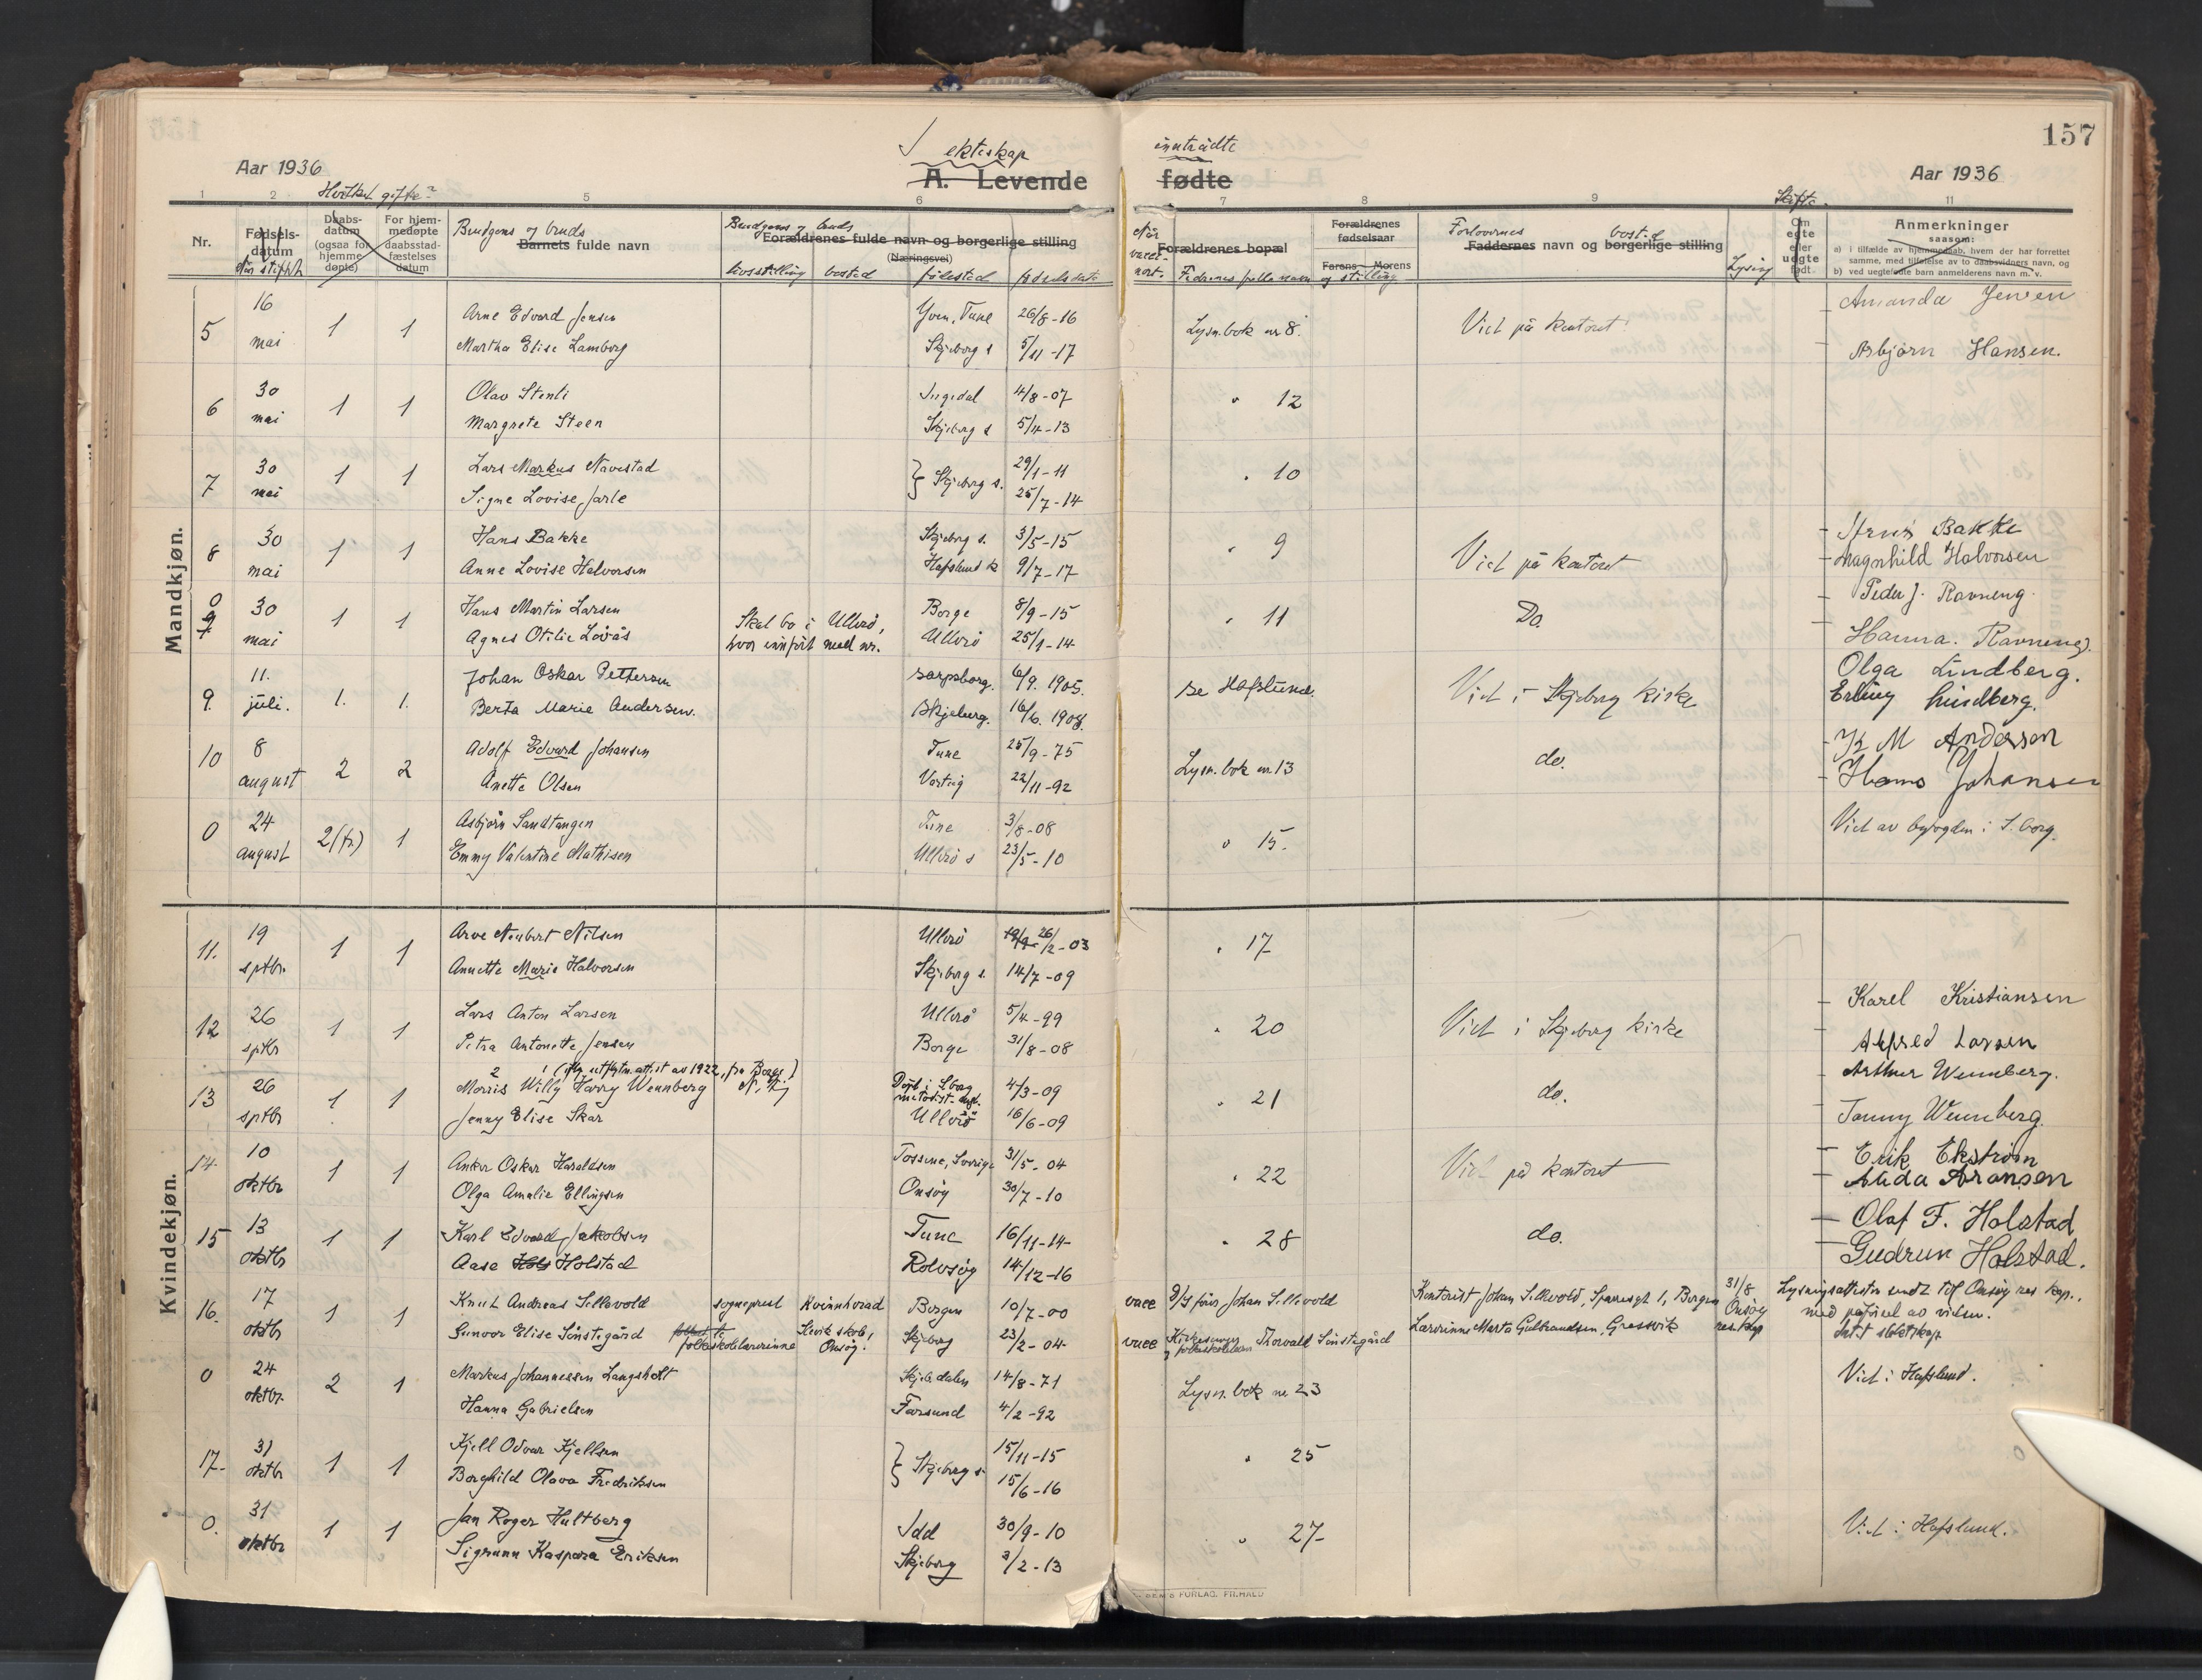 157
Aar 1936
ekteskap
inntrådte
A. Levende
fødte
Aar 1936
Hvilket gifte?
Skifte.
1 2 5 6 7 8 9 11
Nr.
Fødsels-datum
Når stiftet
Daabs-datum (ogsaa for hjemme døpte)
For hjem-medøpte daabsstad-fæstelses datum
Brudgoms og bruds
Barnets fulde navn
Brudgoms og bruds
Forældrenes fulde navn og borgerlige stilling
(Næringsvei)
livsstilling bosted fødested fødselsdato
Når vaccinert.
Forældrenes bopæl
Fedrenes fulle navn og stilling
Forældrenes fødselsaar
Farens Morens
Forlovernes bosted
Faddernes navn og borgerlige stilling
Lysning
Om egte eller uegte født.
Anmerkninger
saasom:
a) i tilfælde av hjemmedaab, hvem der har forrettet samme, med tilføielse av to daabsvidners navn, og
b) ved uegtefødte barn anmelderens navn m. v.
Mandkjøn.
5 16 mai 1 1 Arne Edvard Jensen Yven, Tune 26/8-16 Lysn.bok nr 8. Viet på kontoret Amanda Jensen
Martha Elise Lamberg Skjeberg s 5/11-17 Asbjørn Hansen.
6 30 mai 1 1 Olav Stenli Ingedal 4/8-07 " 12
Margrete Steen Skjeberg s 5/4-13
7 30 mai 1 1 Lars Markus Navestad } Skjeberg s. 29/1-11 " 10
Signe Lovise Jarle 25/7-14
8 30 mai 1 1 Hans Bakke Skjeberg s. 3/5-15 " 9 Viet på kontoret Bakke
Anne Lovise Halvorsen Hafslund k 9/7-17 Magnhild Halvorsen
0 30 mai 1 1 Hans Martin Larsen Skal bo i Ullerø, Borge 8/9-15 " 11 Do. Peder J. Ravneng.
Agnes Otilie Løvås hvor innført med nr. Ullerø 25/1-14 Hanna. Ravneng.
9. 11. juli. 1. 1. Johan Oskar Pettersen Sarpsborg. 6/9. 1905. se Hafslund. Viet i Skjeberg kirke Olga Lindberg.
Berta Marie Andersen. Skjeberg. 16/6. 1908. Erling Lindberg.
10 8 august 2 2 Adolf Edvard Johansen Tune 25/9-75 Lysn.bok nr. 13 do. K M Andersen
Anette Olsen Varteig 22/11-92 Hans Johansen
0 24 august 2(fr.) 1 Asbjørn Sandtangen Tune 3/8-08 " 15. Viet av byfogden i S.borg.
Emmy Valentine Mathisen Ullerø s 23/5-10
Kvindekjøn.
11. 19 sptbr. 1 1 Arve Neubert Nilsen Ullerø 26/2-03 " 17
Annette Marie Halvorsen Skjeberg s. 14/7-09
12 26 sptbr 1 1 Lars Anton Larsen Ullerø 5/4-99 " 20 Viet i Skjeberg kirke Karel Kristiansen
Petra Antonette Jensen Borge 31/8-08 Alfred Larsen
2 1 (iflg. utflytn.attest av 1922, fra Borge)
13 26 sptbr 1 1 Morris Willy Harry Wennberg Døpt i S.borg metodist- 4/3-09 " 21 do. Arthur Wennberg.
Jenny Elise Skår Ullerö 16/6-09 Jenny Wennberg.
14. 10 oktbr 1 1 Anker Oskar Haraldsen Tossene, Sverige 31/5-04 " 22 Viet på kontoret Erik Ekström
Olga Amalie Ellingsen Onsøy 30/7-10 Alida Aronsen
15 13 oktb 1 1 Karl Edvard Jakobsen Tune 16/11-14 " 28 do. Olaf F. Holstad
Aase Hols Holstad Rolvsøy 14/12-16 Gudrun Holstad.
16. 17 oktb 1 1 Knut Andreas Sellevold sogneprest Kvinnherad Bergen 10/7-00 vacc Johan Sellevold Kontorist Johan Sellevold, Sparresgt 1, Bergen 31/8 Onsøy res.kap Lysningsattester sendt til Onsøy res kap.,
med påførsel av vielsen.
Gunvor Elise Sønstegård folkeskolelærerinne Slevik skole, Onsøy. Skjeberg 23/2-04 vacc Kirkesanger og folkeskolelærer Thorvald Sønstegård Lærerinne Marta Gulbrandsen, Gressvik Intet slektskap
0 24 oktbr. 2 1 Markus Johannessen Langsholt Skjebdalen 14/8-71 Lysn.bok nr 23 Viet i Hafslund.
Hanna Gabrielsen Farsund 4/2-92
17- 31 oktbr 1 1 Kjell Odvar Kjellsen } Skjeberg s. 15/11-15 " 25
Borghild Olava Fredriksen 15/6-16
0. 31 oktbr 1 1 Jan Roger Hultberg Idd 30/9-10 " 27- Viet i Hafslund.
Sigrunn Kaspara Eriksen Skjeberg 3/2-13
FORLAG. FR.HALD